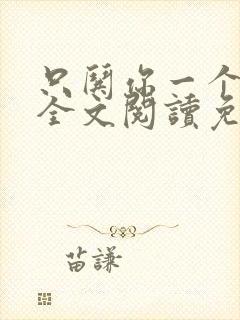 只關你一个
全文閱讀免
苗謙